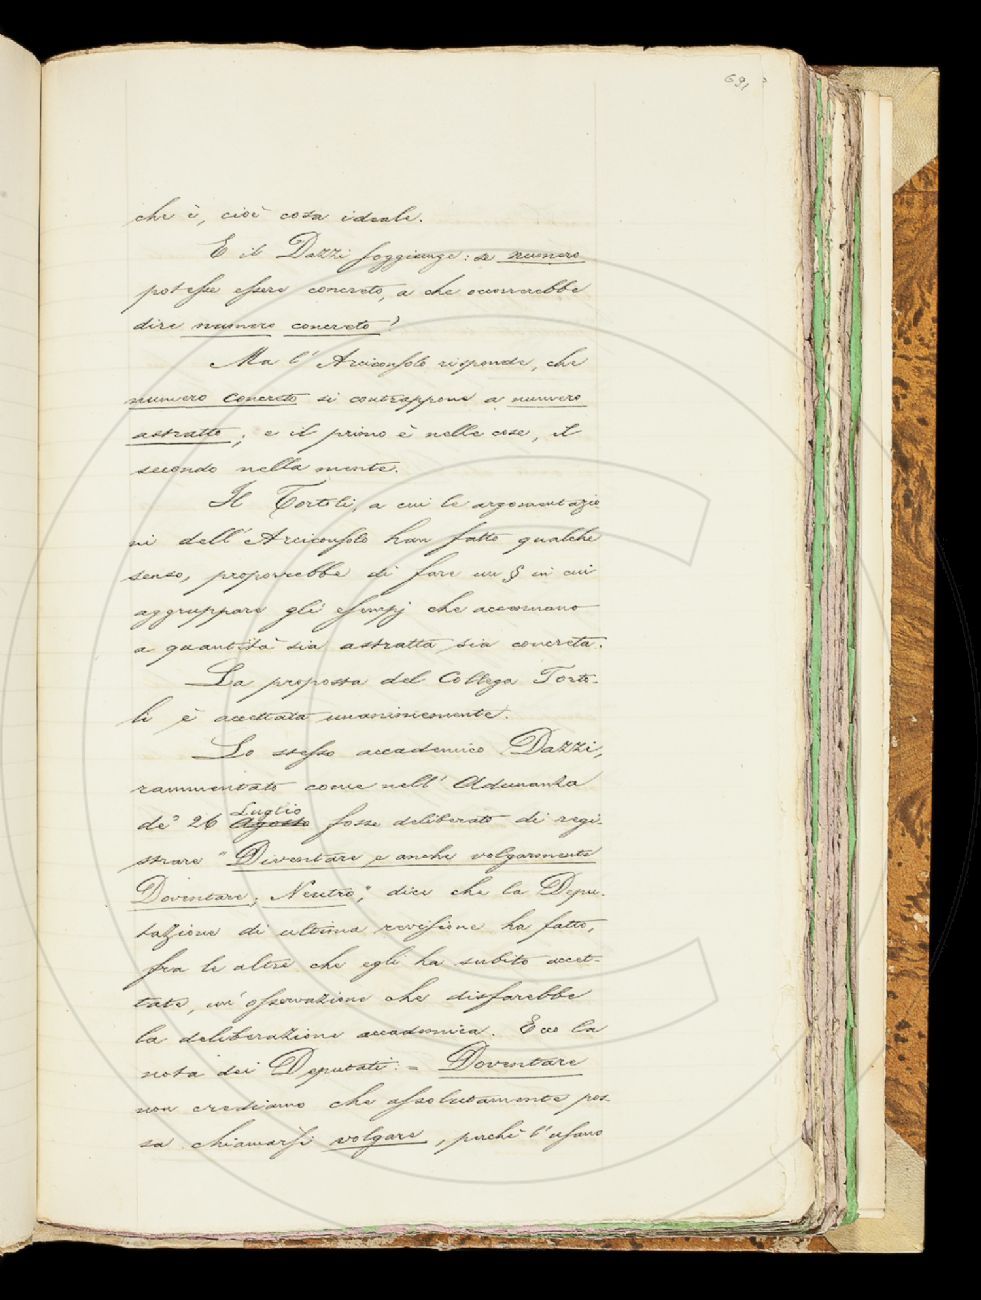 691
che è, cioè cosa ideale.
E il Dazzi soggiunge: se numero
potesse essere concreto, a che occorrerebbe
dire numero concreto?
Ma l'Arciconsolo risponde, che
numero concreto si contrappone a numero
astratto; e il primo è nelle cose, il
secondo nella mente.
Il Tortoli, a cui le argomentazio
ni dell'Arciconsolo han fatto qualche
senso, proporrebbe di fare un § in cui
aggruppare gli esempj che accennano
a quantità sia astratta sia concreta.
La proposta del Collega Torto-
li è accettata unanimemente.
Lo stesso accademico Dazzi,
rammentato come nell'Adunanza
de' 26 Agosto Luglio fosse deliberato di regi-
strare "Diventare, e anche volgarmente
Doventare; Neutro," dice che la Depu-
tazione di ultima revisione ha fatto,
fra le altre che egli ha subito accet-
tate, un'osservazione che disfarebbe
la deliberazione accademica. Ecco la
nota dei Deputati: = Doventare
non crediamo che assolutamente pos-
sa chiamarsi volgare, perchè l'usano